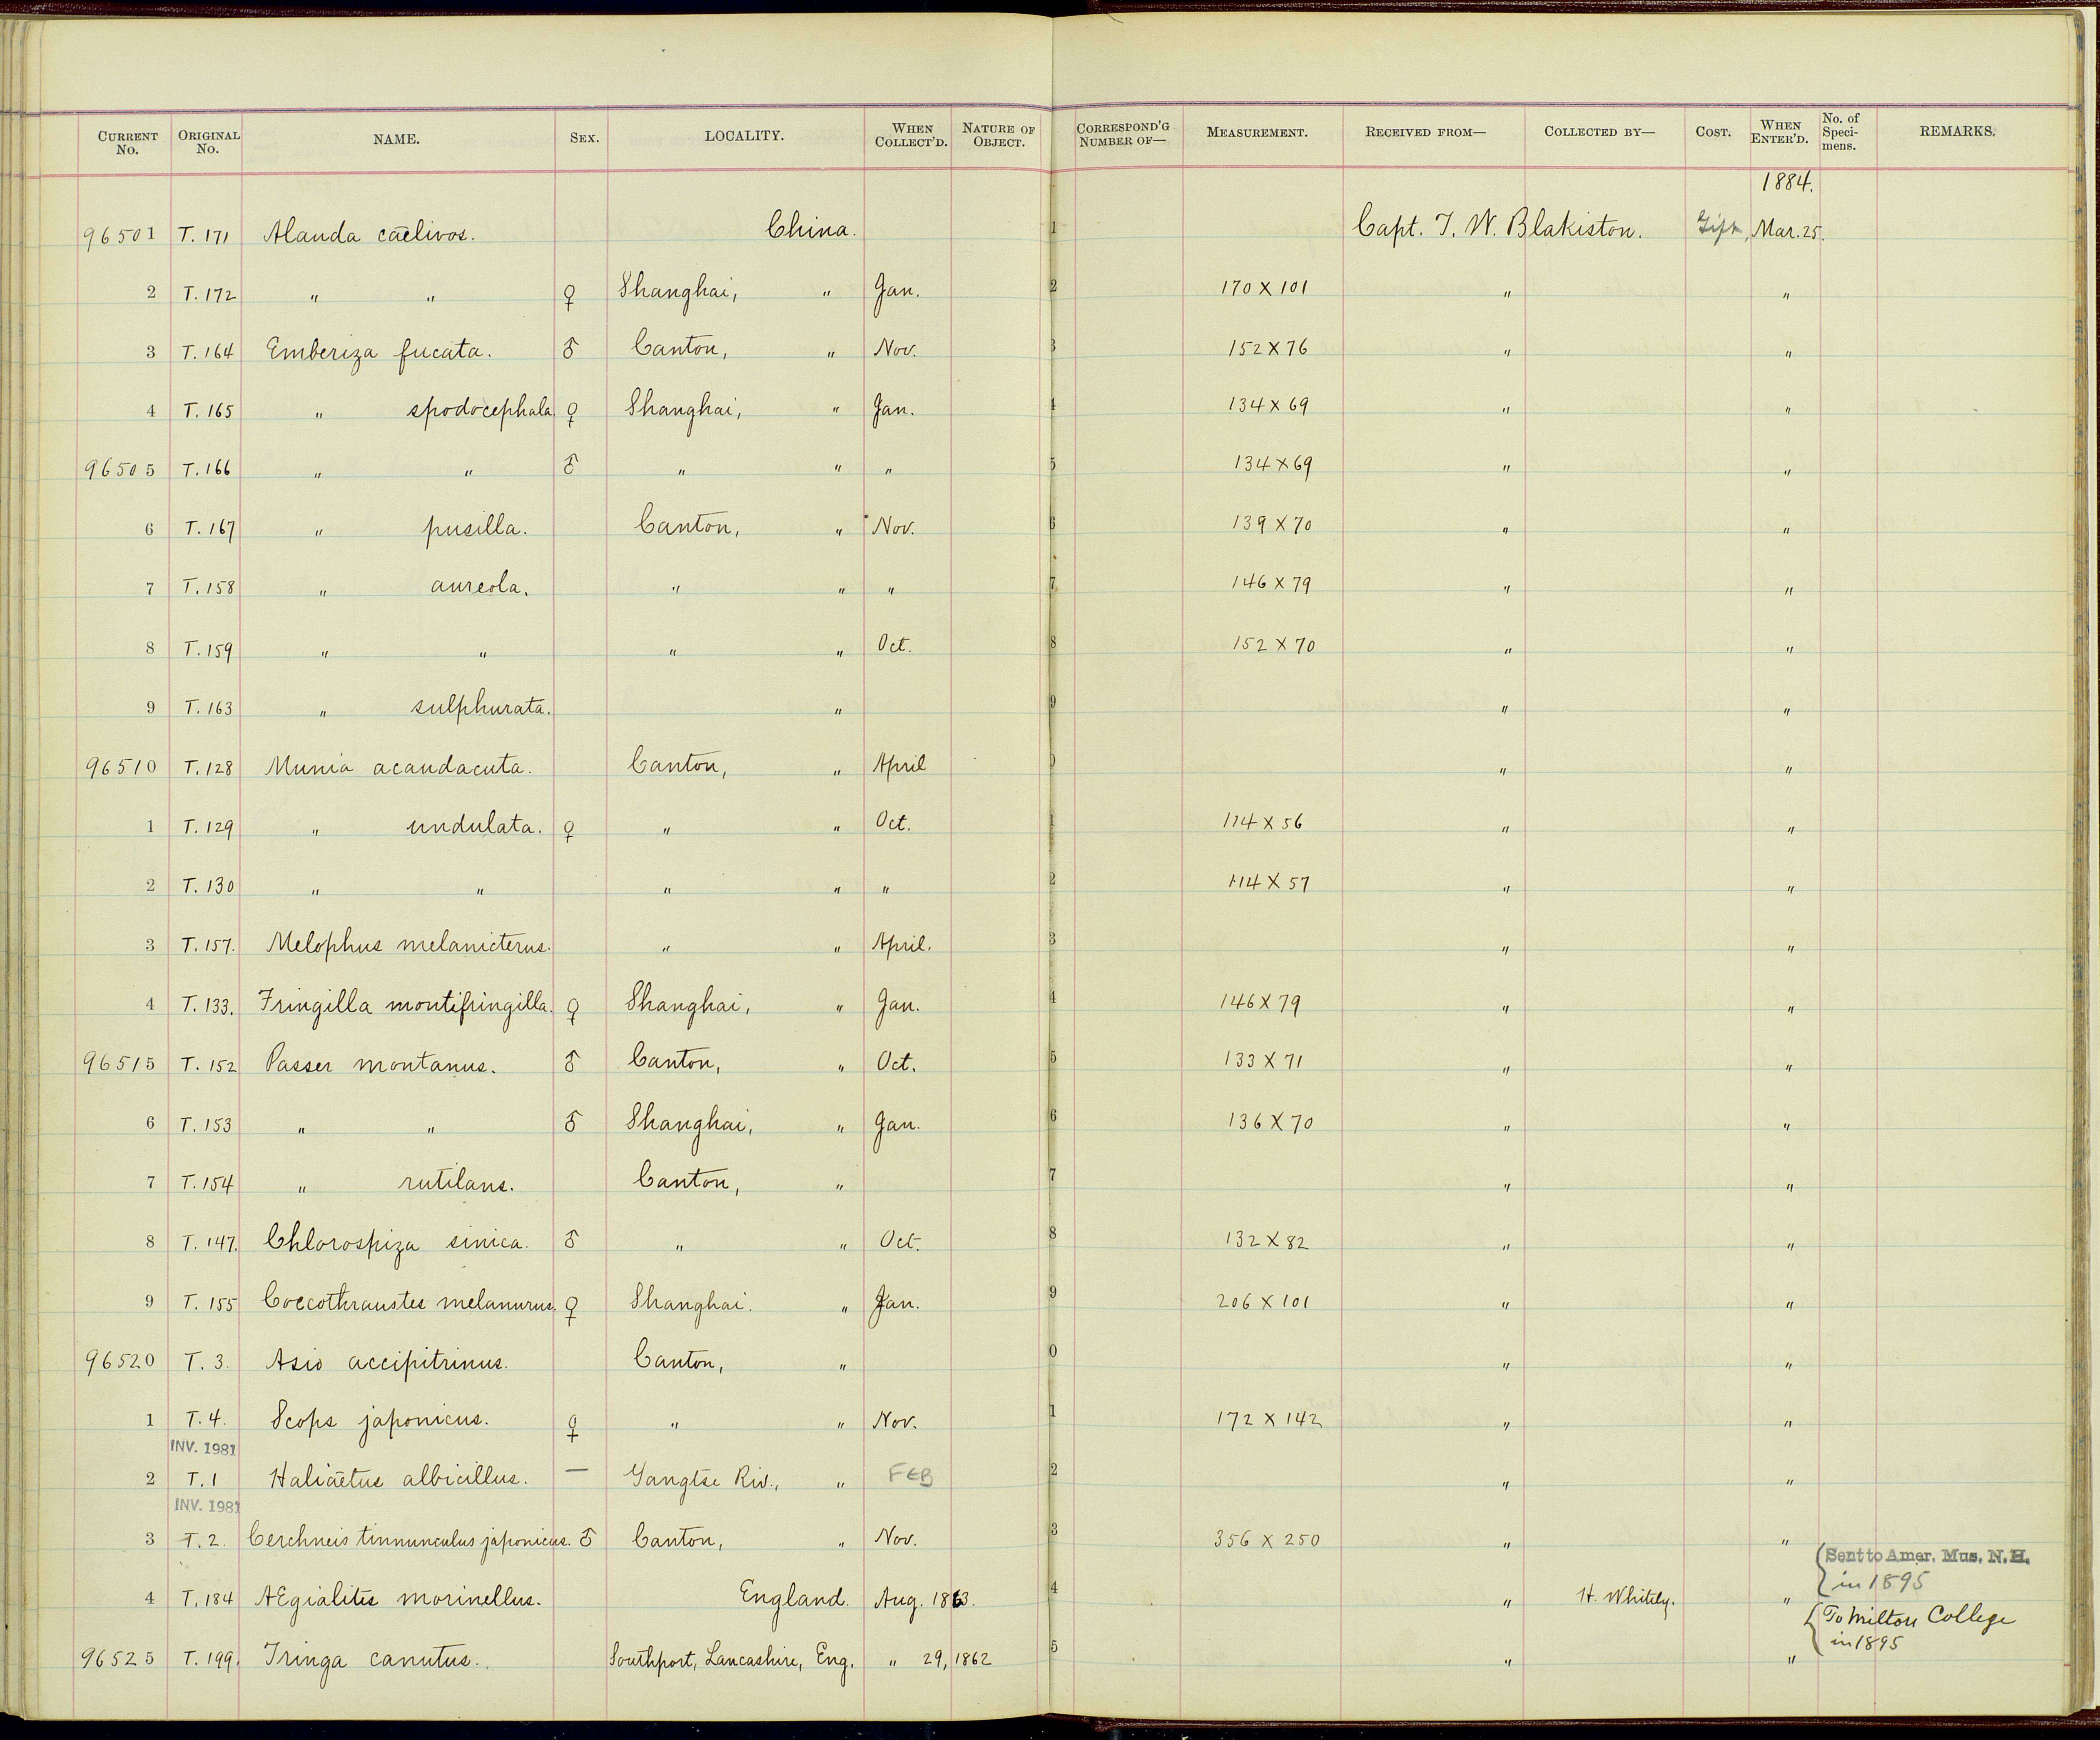 CURRENT No. ORIGINAL No. NAME. SEX. LOCALITY. WHEN COLLECT'D. NATURE OF OBJECT. CORRESPOND'G NUMBER OF— MEASUREMENT. RECEIVED FROM— COLLECTED BY— COST. WHEN ENTER'D. No. of Speci-mens. REMARKS.
1884.
96501 T. 171 Alauda cœlivox. China. 1 Capt. T. W. Blakiston. Gift, Mar. 25.
2 T. 172 " " ♀ Shanghai, " Jan. 2 170 X 101 " "
3 T. 164 Emberiza fucata. ♂ Canton, " Nov. 3 152 X 76 " "
4 T. 165 " spodocephala ♀ Shanghai, " Jan. 4 134 X 69 " "
96505 T. 166 " " ♂ " " " 5 134 X 69 " "
6 T. 167 " pusilla. Canton, " Nov. 6 139 X 70 " "
7 T. 158 " aureola. " " " 7 146 X 79 " "
8 T. 159 " " " " Oct. 8 152 X 70 " "
9 T. 163 " sulphurata. " 9 " "
96510 T. 128 Munia acaudacuta. Canton, " April 0 " "
1 T. 129 " undulata. ♀ " " Oct. 1 114 X 56 " "
2 T. 130 " " " " " 2 114 X 57 " "
3 T. 157. Melophus melanicterus. " " April. 3 " "
4 T. 133. Fringilla montifringilla. ♀ Shanghai, " Jan. 4 146 X 79 " "
96515 T. 152 Passer montanus. ♂ Canton, " Oct. 5 133 X 71 " "
6 T. 153 " " ♂ Shanghai, " Jan. 6 136 X 70 " "
7 T. 154 " rutilans. Canton, " 7 " "
8 T. 147. Chlorospiza sinica. ♂ " " Oct. 8 132 X 82 " "
9 T. 155 Coccothraustes melanurus. ♀ Shanghai. " Jan. 9 206 X 101 " "
96520 T. 3. Asio accipitrinus. Canton, " 0 " "
1 T. 4. Scops japonicus. ♀ " " Nov. 1 172 X 142 " "
INV. 1981
2 T. 1 Haliaëtus albicillus. — Yangtse Riv., " FEB 2 " "
INV. 1981
3 T. 2. Cerchneis tinnunculus japonicus. ♂ Canton, " Nov. 3 356 X 250 " "
Sent to Amer. Mus. N.H.
in 1895
4 T. 184 AEgialitis morinellus. England. Aug. 1863. 4 " H. Whitely. "
To Milton College
in 1895
96525 T. 199. Tringa canutus. Southport, Lancashire, Eng. " 29, 1862 5 " "